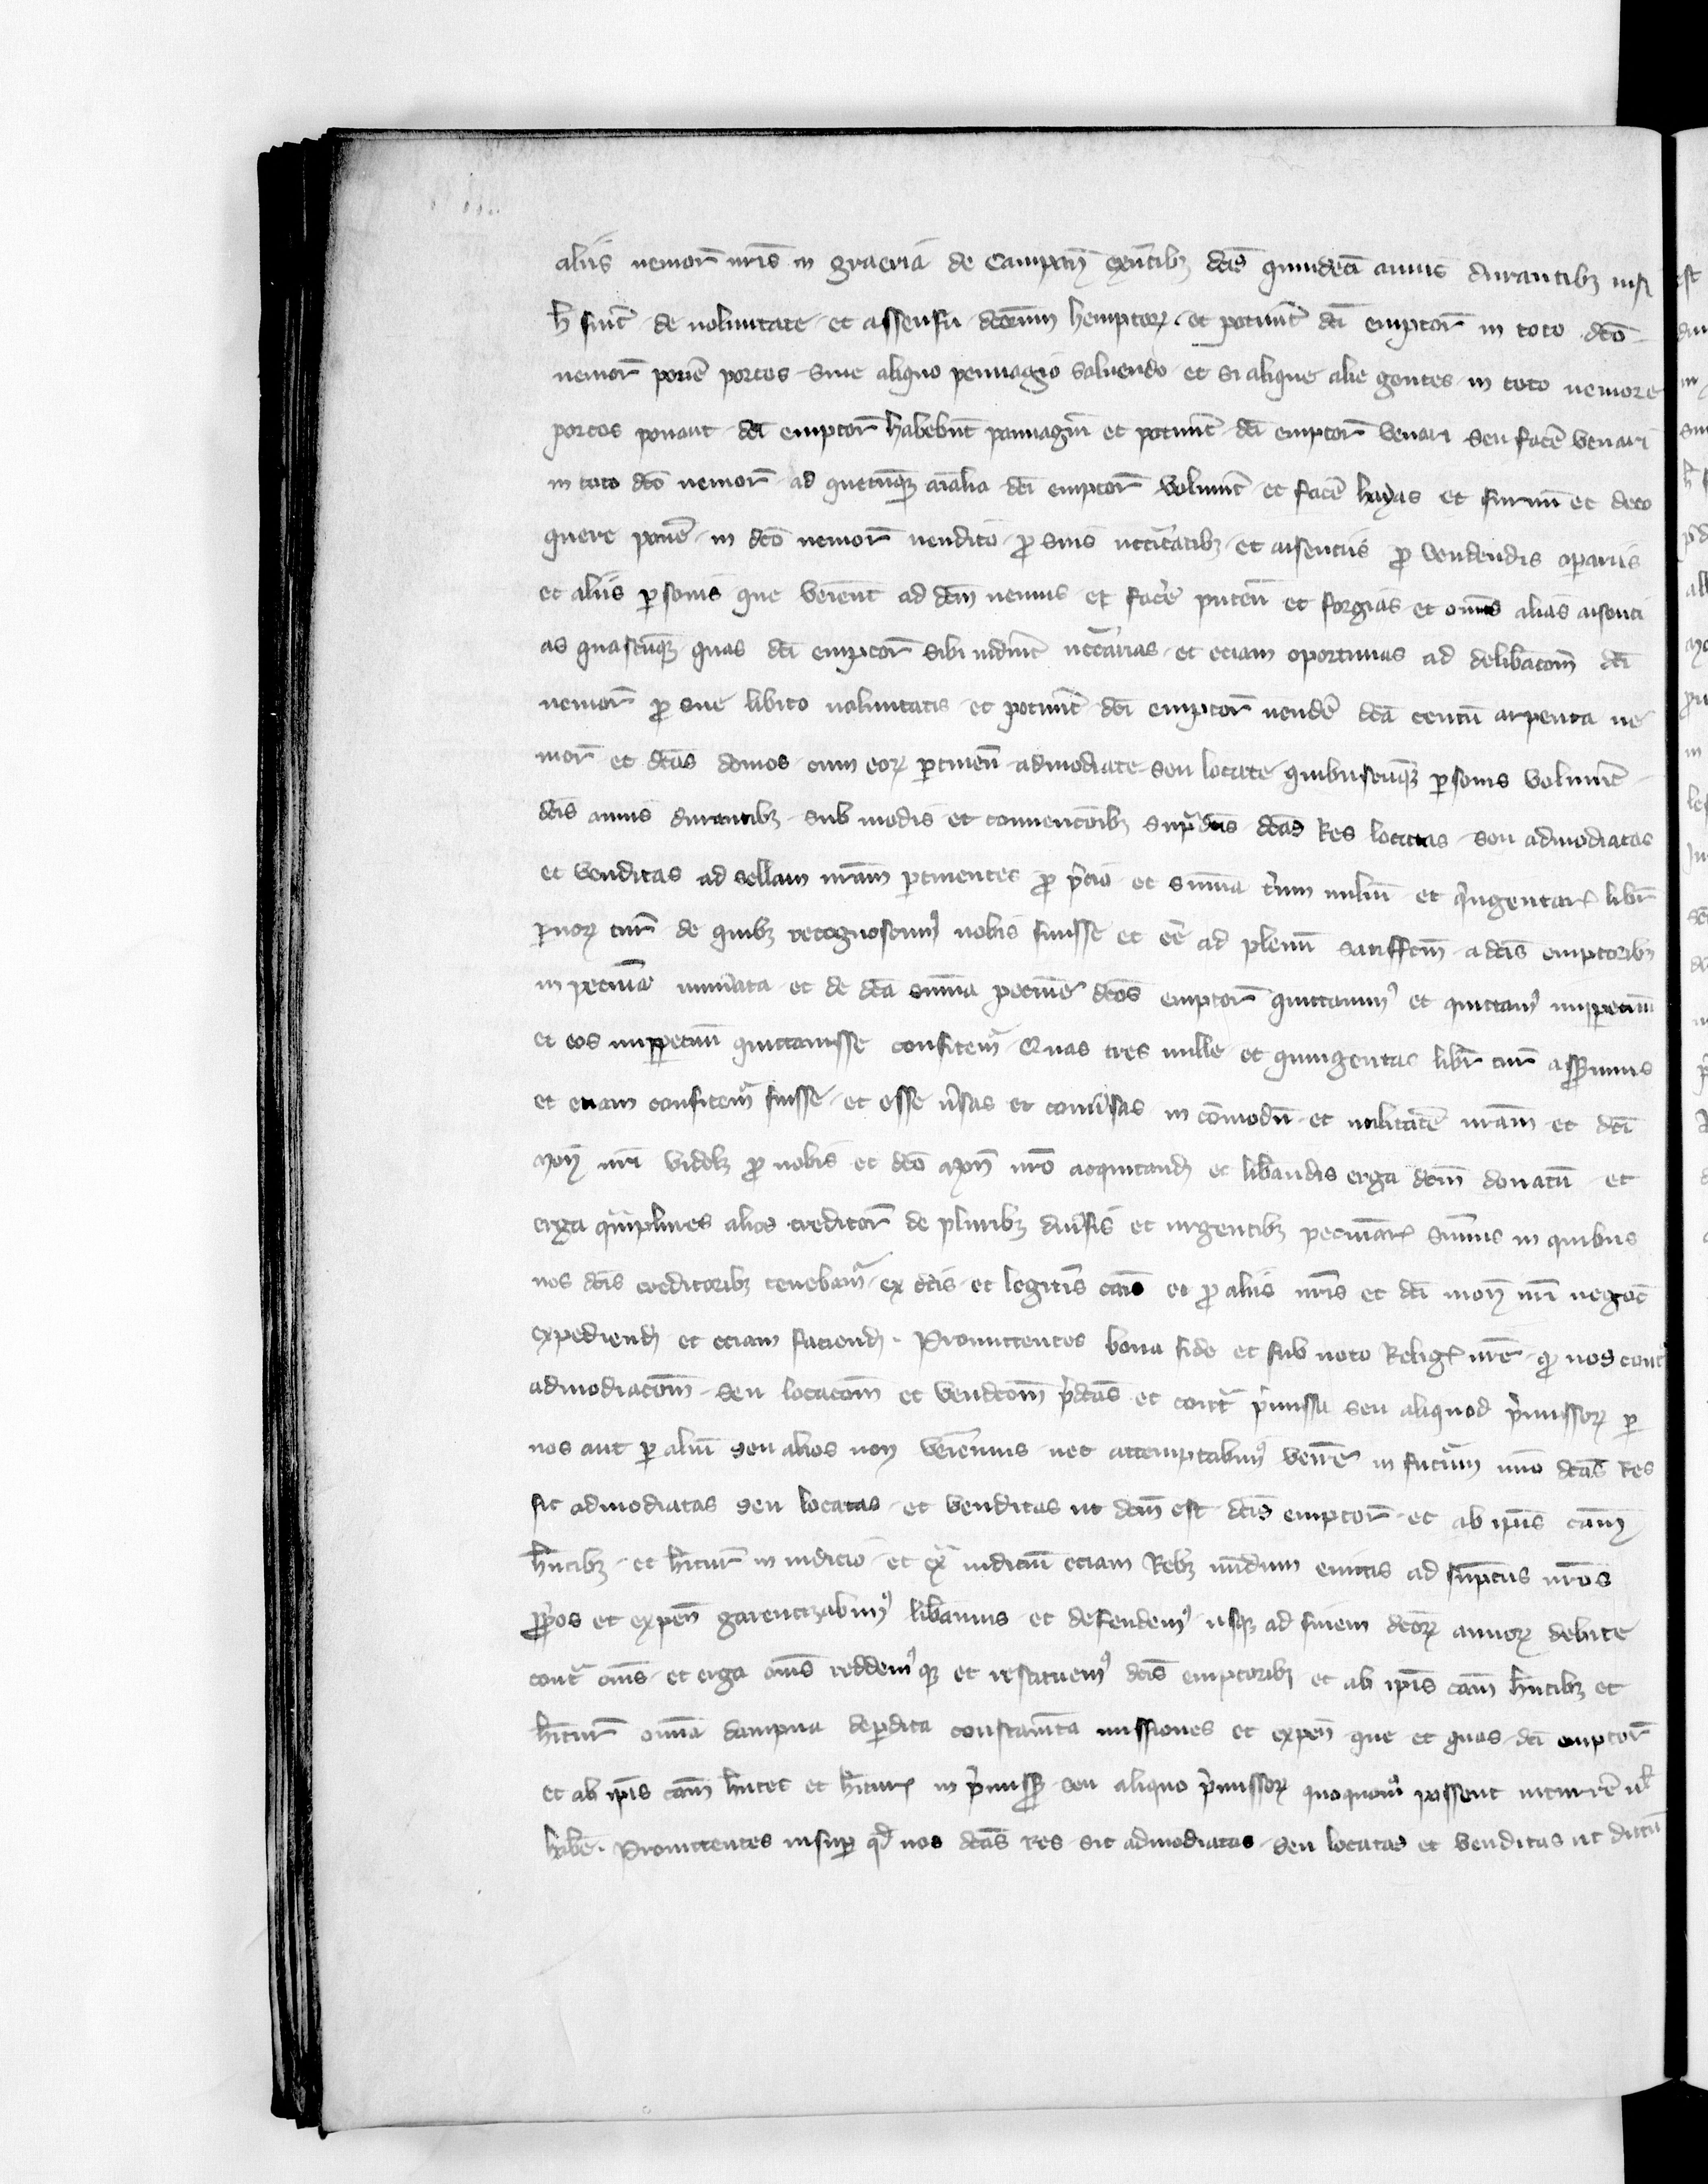 aliis nemor̄ nr̄is in graeria de Campan̄ exn̄tibꝫ dc̄is quindeci annis durantibꝫ nisi
h̄ fiūt de uoluntate et assensu dc̄orum hemptorꝝ et poter̄ut dc̄i emptor̄ in toto dc̄o
nemor̄ poner̄e porcos sine aliquo pennagio soluendo et si alique alie gentes in toto nemore
porcos ponant dc̄i emptor̄ habebūt pannagiū et poter̄ut dc̄i emptor̄ venari seu facer̄e venari
in toto dc̄o nemor̄ ad quecūqꝫ aīalia dc̄i emptor̄ voluer̄it et facer̄e hayas et furnū et deco
quere poner̄e in dc̄o nemor̄ uendito ꝓ suis nccītatibꝫ et aisenciis ꝓ vendendis oꝑariis
et aliis ꝑsonis que veiēnt ad dc̄m nemus et facer̄e puteū et forgias et om̄es alias aisenci
as quascūqꝫ quas dc̄i emptor̄ sibi uider̄int nccārias et eciam oportunas ad delibac̄om̄ dc̄i
nemor̄ ꝓ sue libito uoluntatis et poter̄ut dc̄i emptor̄ uender̄e dc̄a centū arpenta ne
mor̄ et dc̄as domos cum eorꝝ ꝑtinen̄ admodiare seu locare quibuscūqꝫ ꝑsonis voluer̄it
dc̄is annis durantibꝫ sub modis et conuenc̄oibꝫ supͣdc̄is dc̄as Res locatas seu admodiatas
et venditas ad sellam nr̄am ꝑtinentes ꝓ p̄cio et sūma trium miliū et qͥngentarꝝ libr̄
ꝑuorꝝ tur̄ de quibꝫ recognoscimꝰ nobis fuisse et eē ad plenū satisfc̄m a dc̄is emptoribꝫ
in pecunia numer̄ata et de dc̄a sūma pecunie dc̄os emptor̄ quittauimꝰ et quittamꝰ imꝑpetuū
et eos imꝑpetuū quittauisse confitemͬ Quas tres mille et quingentas libr̄ tur̄ asserimus
et eciam confitemͬ fuisse et esse v̄sas et conūsas in cōmodū et utilitatē nr̄am et dc̄i
Mon̄ nr̄i videlꝫ ꝓ nobis et dc̄o Mon̄ nr̄o acquitand̄ et libandis erga dc̄m donatū et
erga qͣmplures alios creditor̄ de pluribꝫ diūsis et urgentibꝫ pecuniarꝝ sūmis in quibus
nos dc̄is creditoribꝫ tenebamͬ ex c̄tis et legitīs cāis et ꝓ aliis nr̄is et dc̄i mon̄ nr̄i negoc̄
expediend̄ et eciam faciend̄. Promittentes bona fide et sub uoto Reliḡ nr̄e qꝫ nos contͣ
admodiac̄om̄ seu locac̄om̄ et vendic̄om̄ p̄dc̄as et contͣ p̄missa seu aliquod p̄missorꝝ ꝑ
nos aut ꝑ aliū seu alios non veniemus nec attemptabimꝰ venir̄e in futurum immo dc̄as Res
sic admodiatas seu locatas et venditas ut dc̄m est dc̄is emptor̄ et ab ip̄is cām
hn̄tibꝫ et hītur̄ in iudicio et extͣ iudiciū eciam Rebꝫ nundum euictis ad sumptus nr̄os
ꝓp̄os et expen̄ garentizabimꝰ libabimus et defendemꝰ usqꝫ ad finem dc̄orꝝ annorꝝ debite
contͣ om̄s et erga om̄s reddemꝰqꝫ et restituemꝰ dc̄is emptoribꝫ et ab ip̄is cām hn̄tibꝫ et
hītur̄ om̄ia dampna deꝑdita constam̄ta missiones et expen̄ que et quas dc̄i emptor̄
et ab ip̄is cām hn̄tes et hītur̄ in p̄missis seu aliquo p̄missorꝝ quoquomͦ possent incurrer̄e ul̄
haber̄e. Promittentes insuꝑ qd̄ nos dc̄as res sic admodiatas seu locatas et venditas ut dictū